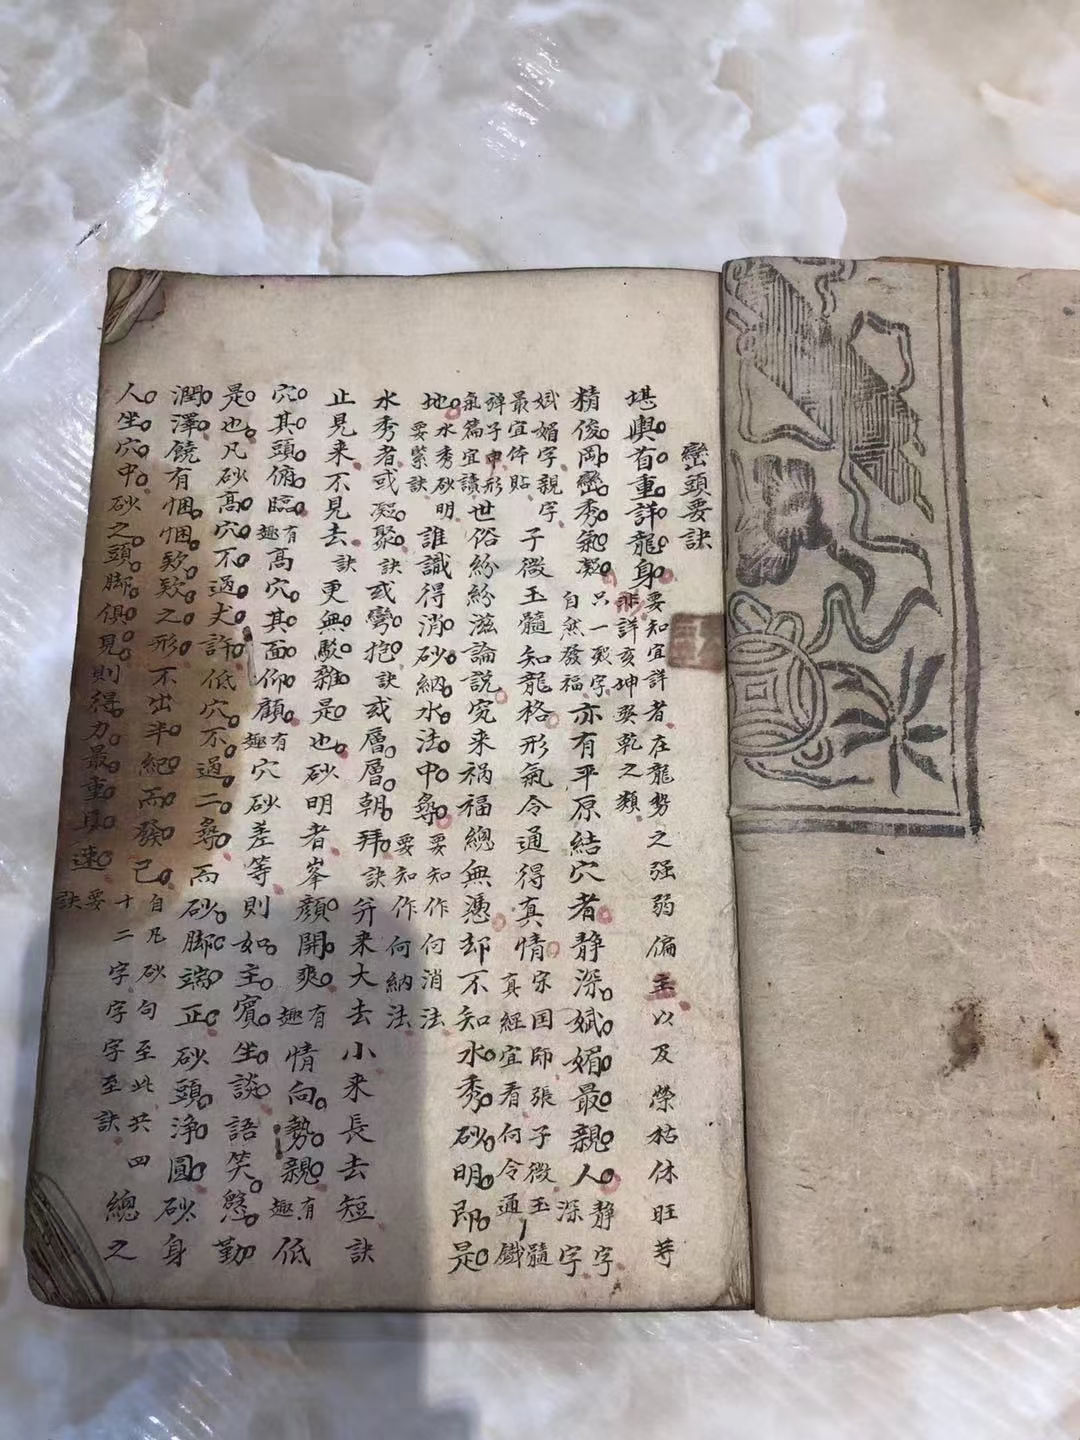 巒頭要訣
堪輿首重詳龍身要知宜詳者在龍勢之强弱偏正以及榮枯休旺等
非詳亥坤癸乾之類
精俊岡巒秀氣凝只一凝字自然發福亦有平原結穴者靜深斌媚最親人靜字深字
斌媚字親字最宜体貼子微玉髓知龍格形氣令通得真情宋国師張子微玉髓真經宜看何令通鐵
彈子中形氣篇宜讀世俗紛紛滋論説究来禍福總無憑却不知水秀砂明即是
地水秀砂明要緊訣誰識得消砂納水法中尋要知作何消法要知作何納法
水秀者或凝聚訣或彎抱訣或層層朝拜訣并来大去小来長去短訣
止見来不見去訣更無駁雜是也砂明者峯顏開爽有趣情向勢親有趣低
穴其頭俯臨有趣高穴其面仰顧有趣穴砂差等則如主賓坐談語笑慇勤
是也凡砂高穴不過丈許低穴不過二尋而砂脚端正砂頭浄圓砂身
潤澤饒有悃悃欵欵之形不出半紀而發己自凡砂句至此共四十二字字字至訣總之
人坐穴中砂之頭脚俱見則得力最重且速要訣